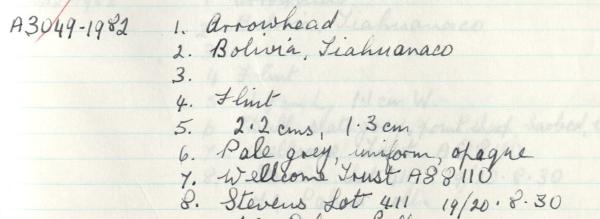 A3049-1982 1. Arrowhead
2. Bolivia, Tiahuanaco
3.
4. Flint
5. 2.2 cms, 1.3 cm
6. Pale grey, uniform, opaque
7. Wellcome Trust A88110
8. Stevens Lot 411 19/20.8.30